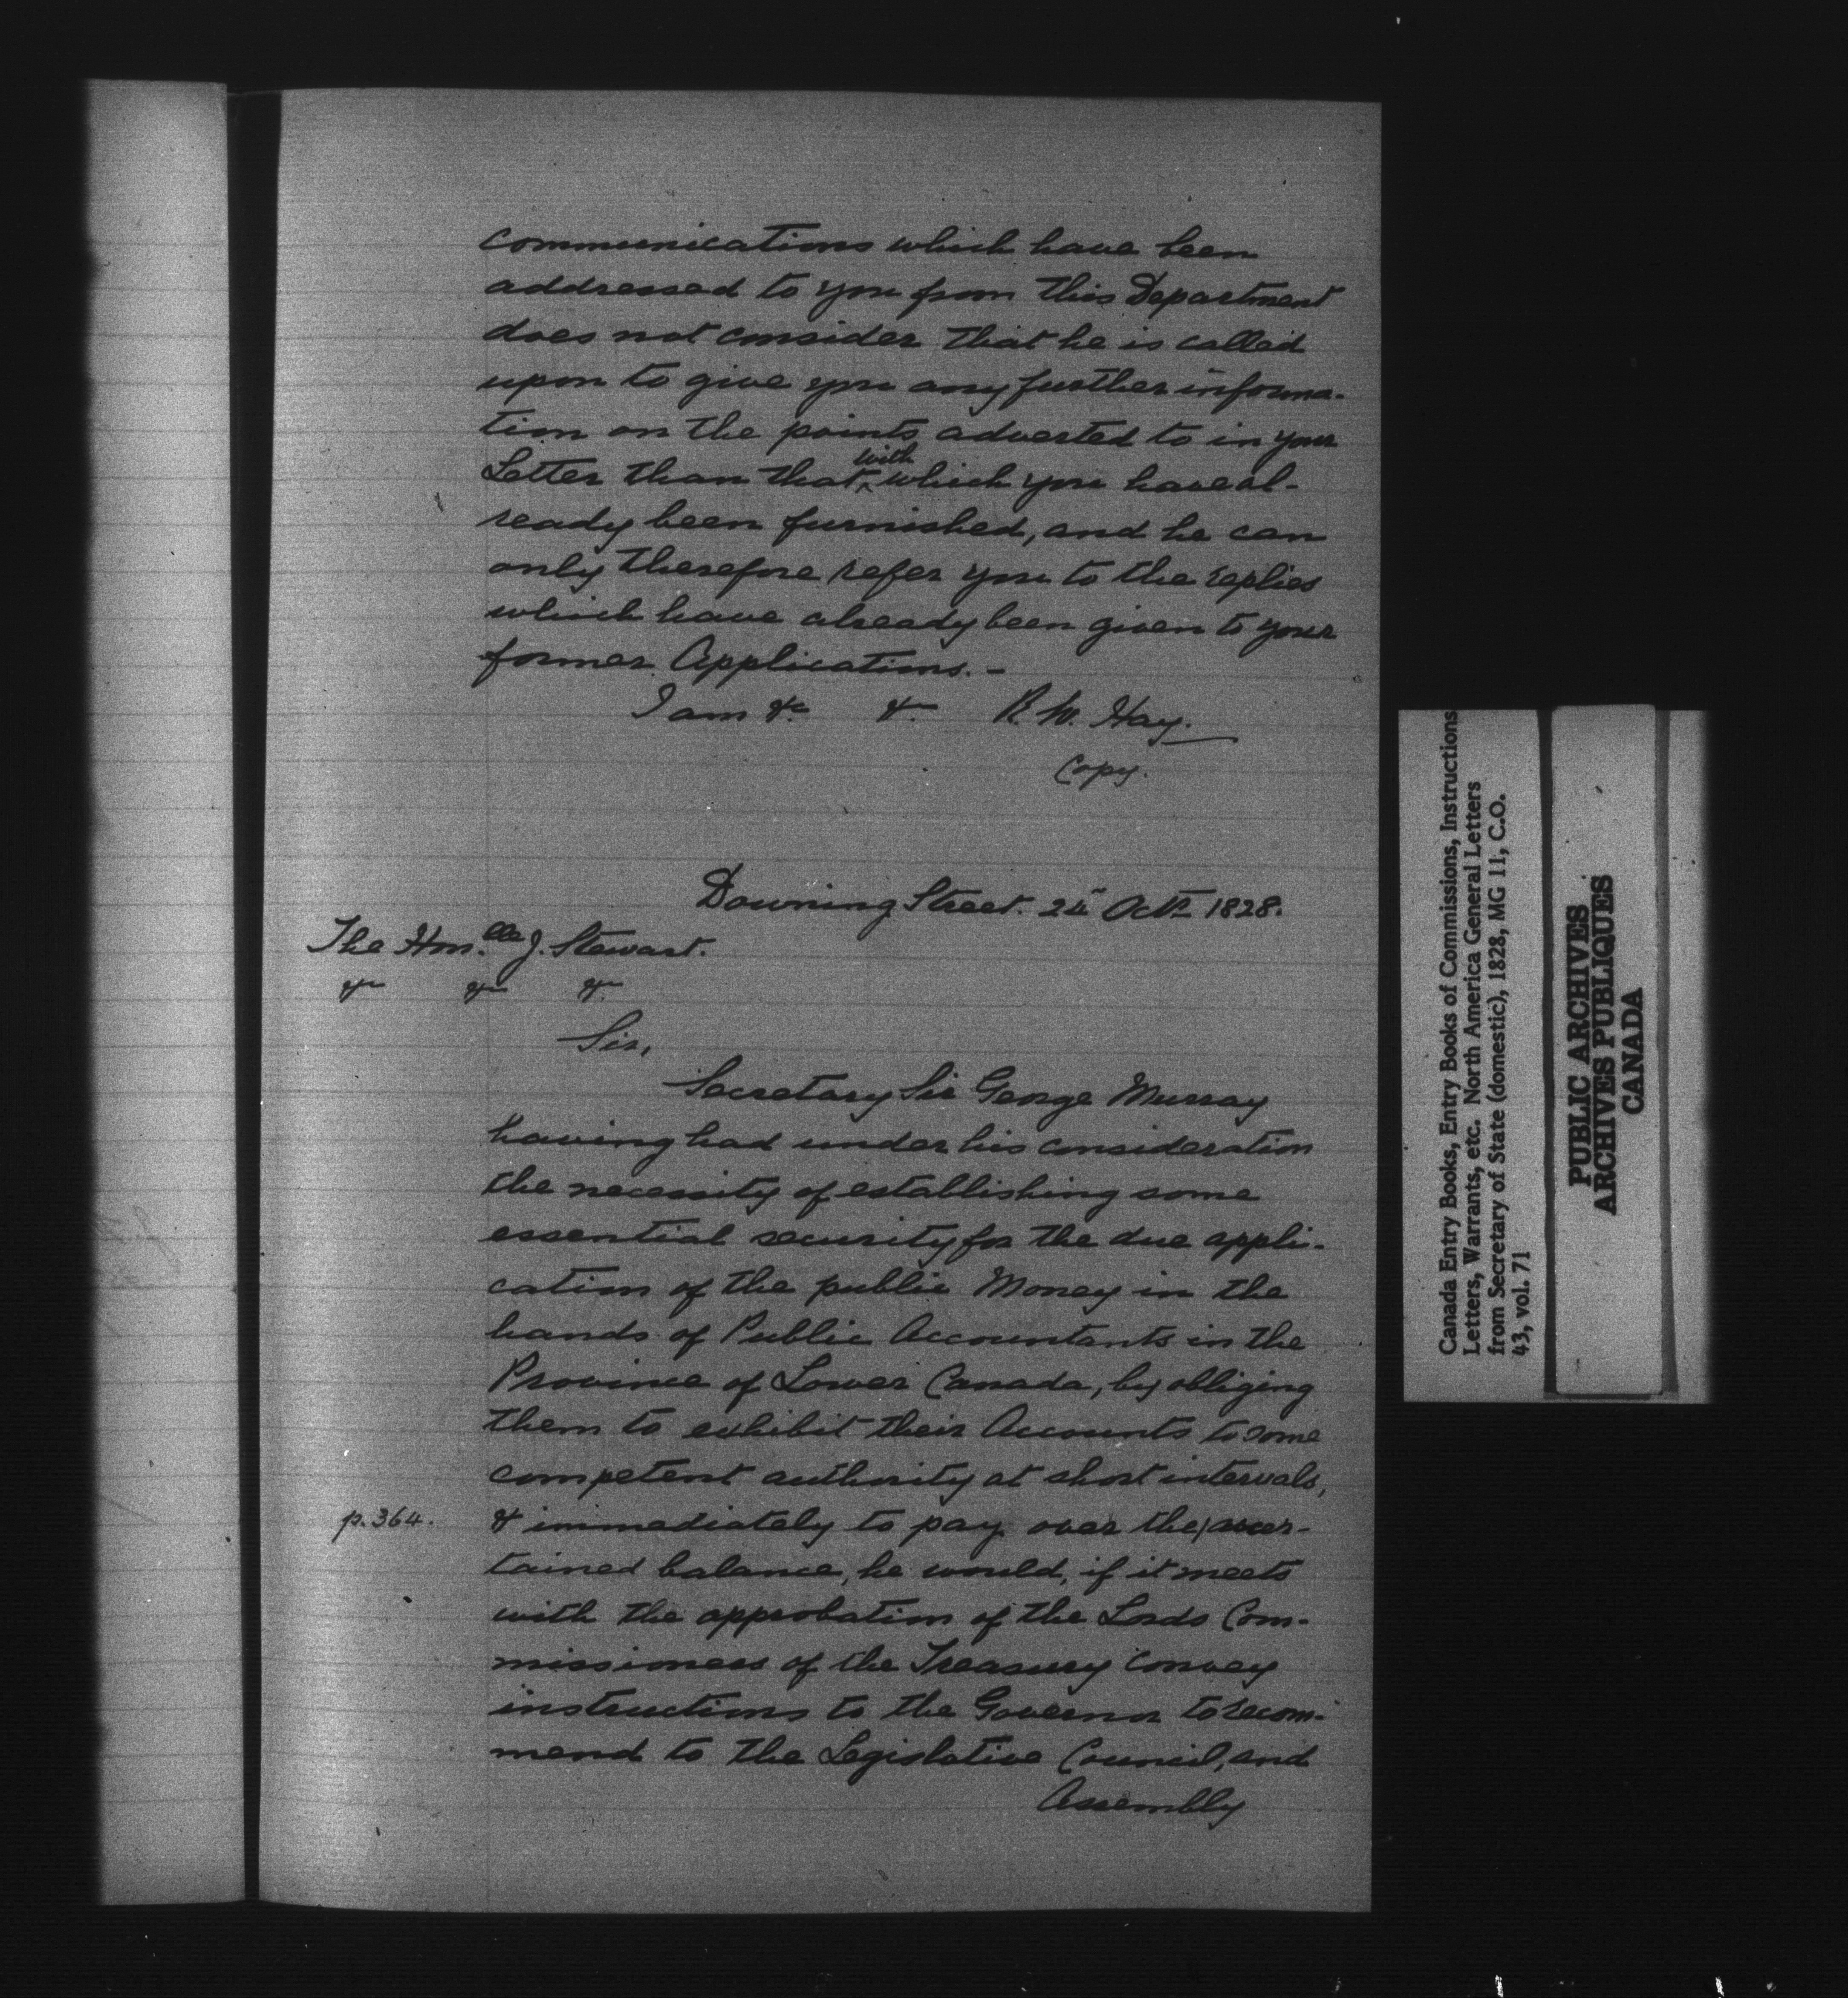 communications which have been
addressed to you from this Department
does not consider that he is called
upon to give you any further informa-
tion on the points adverted to in your
Letter than that with which you have al-
ready been furnished, and he can
only therefore refer you to the replies
which have already been given to your
former Applications.-
I am &c &c R. W. Hay.
Copy.
Downing Street. 24 Octr 1828.
The Hon.ble J. Stewart.
&c &c &c
Sir,
Secretary Sir George Murray
having had under his consideration
the necessity of establishing some
essential security for the due appli-
cation of the public Money in the
hands of Public Accountants in the
Province of Lower Canada, by obliging
them to exhibit their Accounts to some
competent authority at short intervals,
p. 364. & immediately to pay over the/ascer-
tained balance, he would, if it meets
with the approbation of the Lords Com-
missioners of the Treasury convey
instructions to the Governor to recom-
mend to the Legislative Council, and
Assembly
Canada Entry Books, Entry Books of Commissions, Instructions
Letters, Warrants, etc. North America General Letters
from Secretary of State (domestic), 1828, MG 11, C.O.
43, vol. 71
PUBLIC ARCHIVES
ARCHIVES PUBLIQUES
CANADA